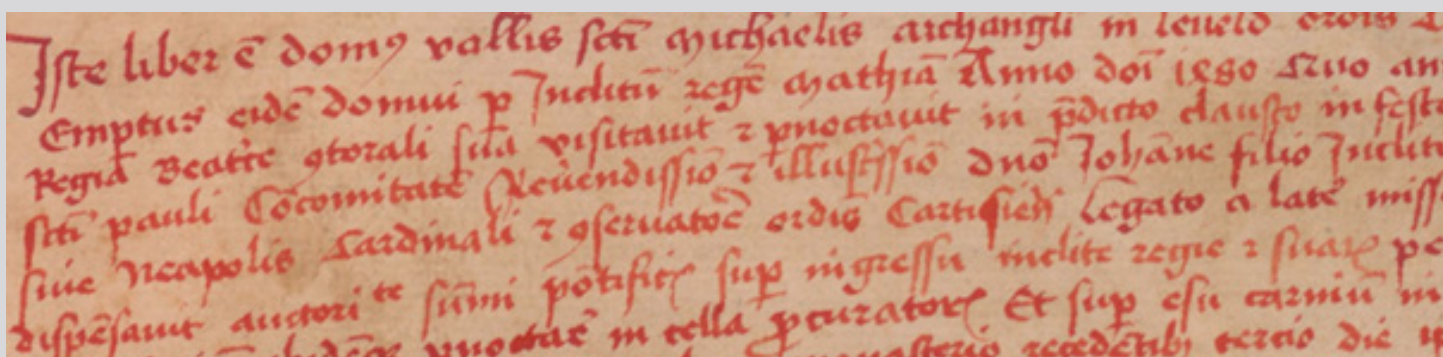 Iste liber ē domꝰ vallis scti Michaelis archangli in leveld ordis
Emptus eidē domui ꝑ Inclitū regē Mathiā Anno doī 1480 Quo an
Regia Beatce ꝯtorali sua visitavit ⁊ ꝑnoctavit in p̄dicto claustro in festo
scti pauli Cōcomitate Revendissīo ⁊ illustssīo dno Iohāne filio Inclite
sive Neapolis Cardinali ⁊ ꝯservatoē ordis Cartusieñ Legato a late miss
dispēsavit auctorite sūmi pōtificꝭ suꝑ ingressu inclite regie ⁊ suaꝝ pe
ꝑnoctaē in cella ꝓcuratorꝭ Et suꝑ esu carniū in
recedētibꝫ tercio die